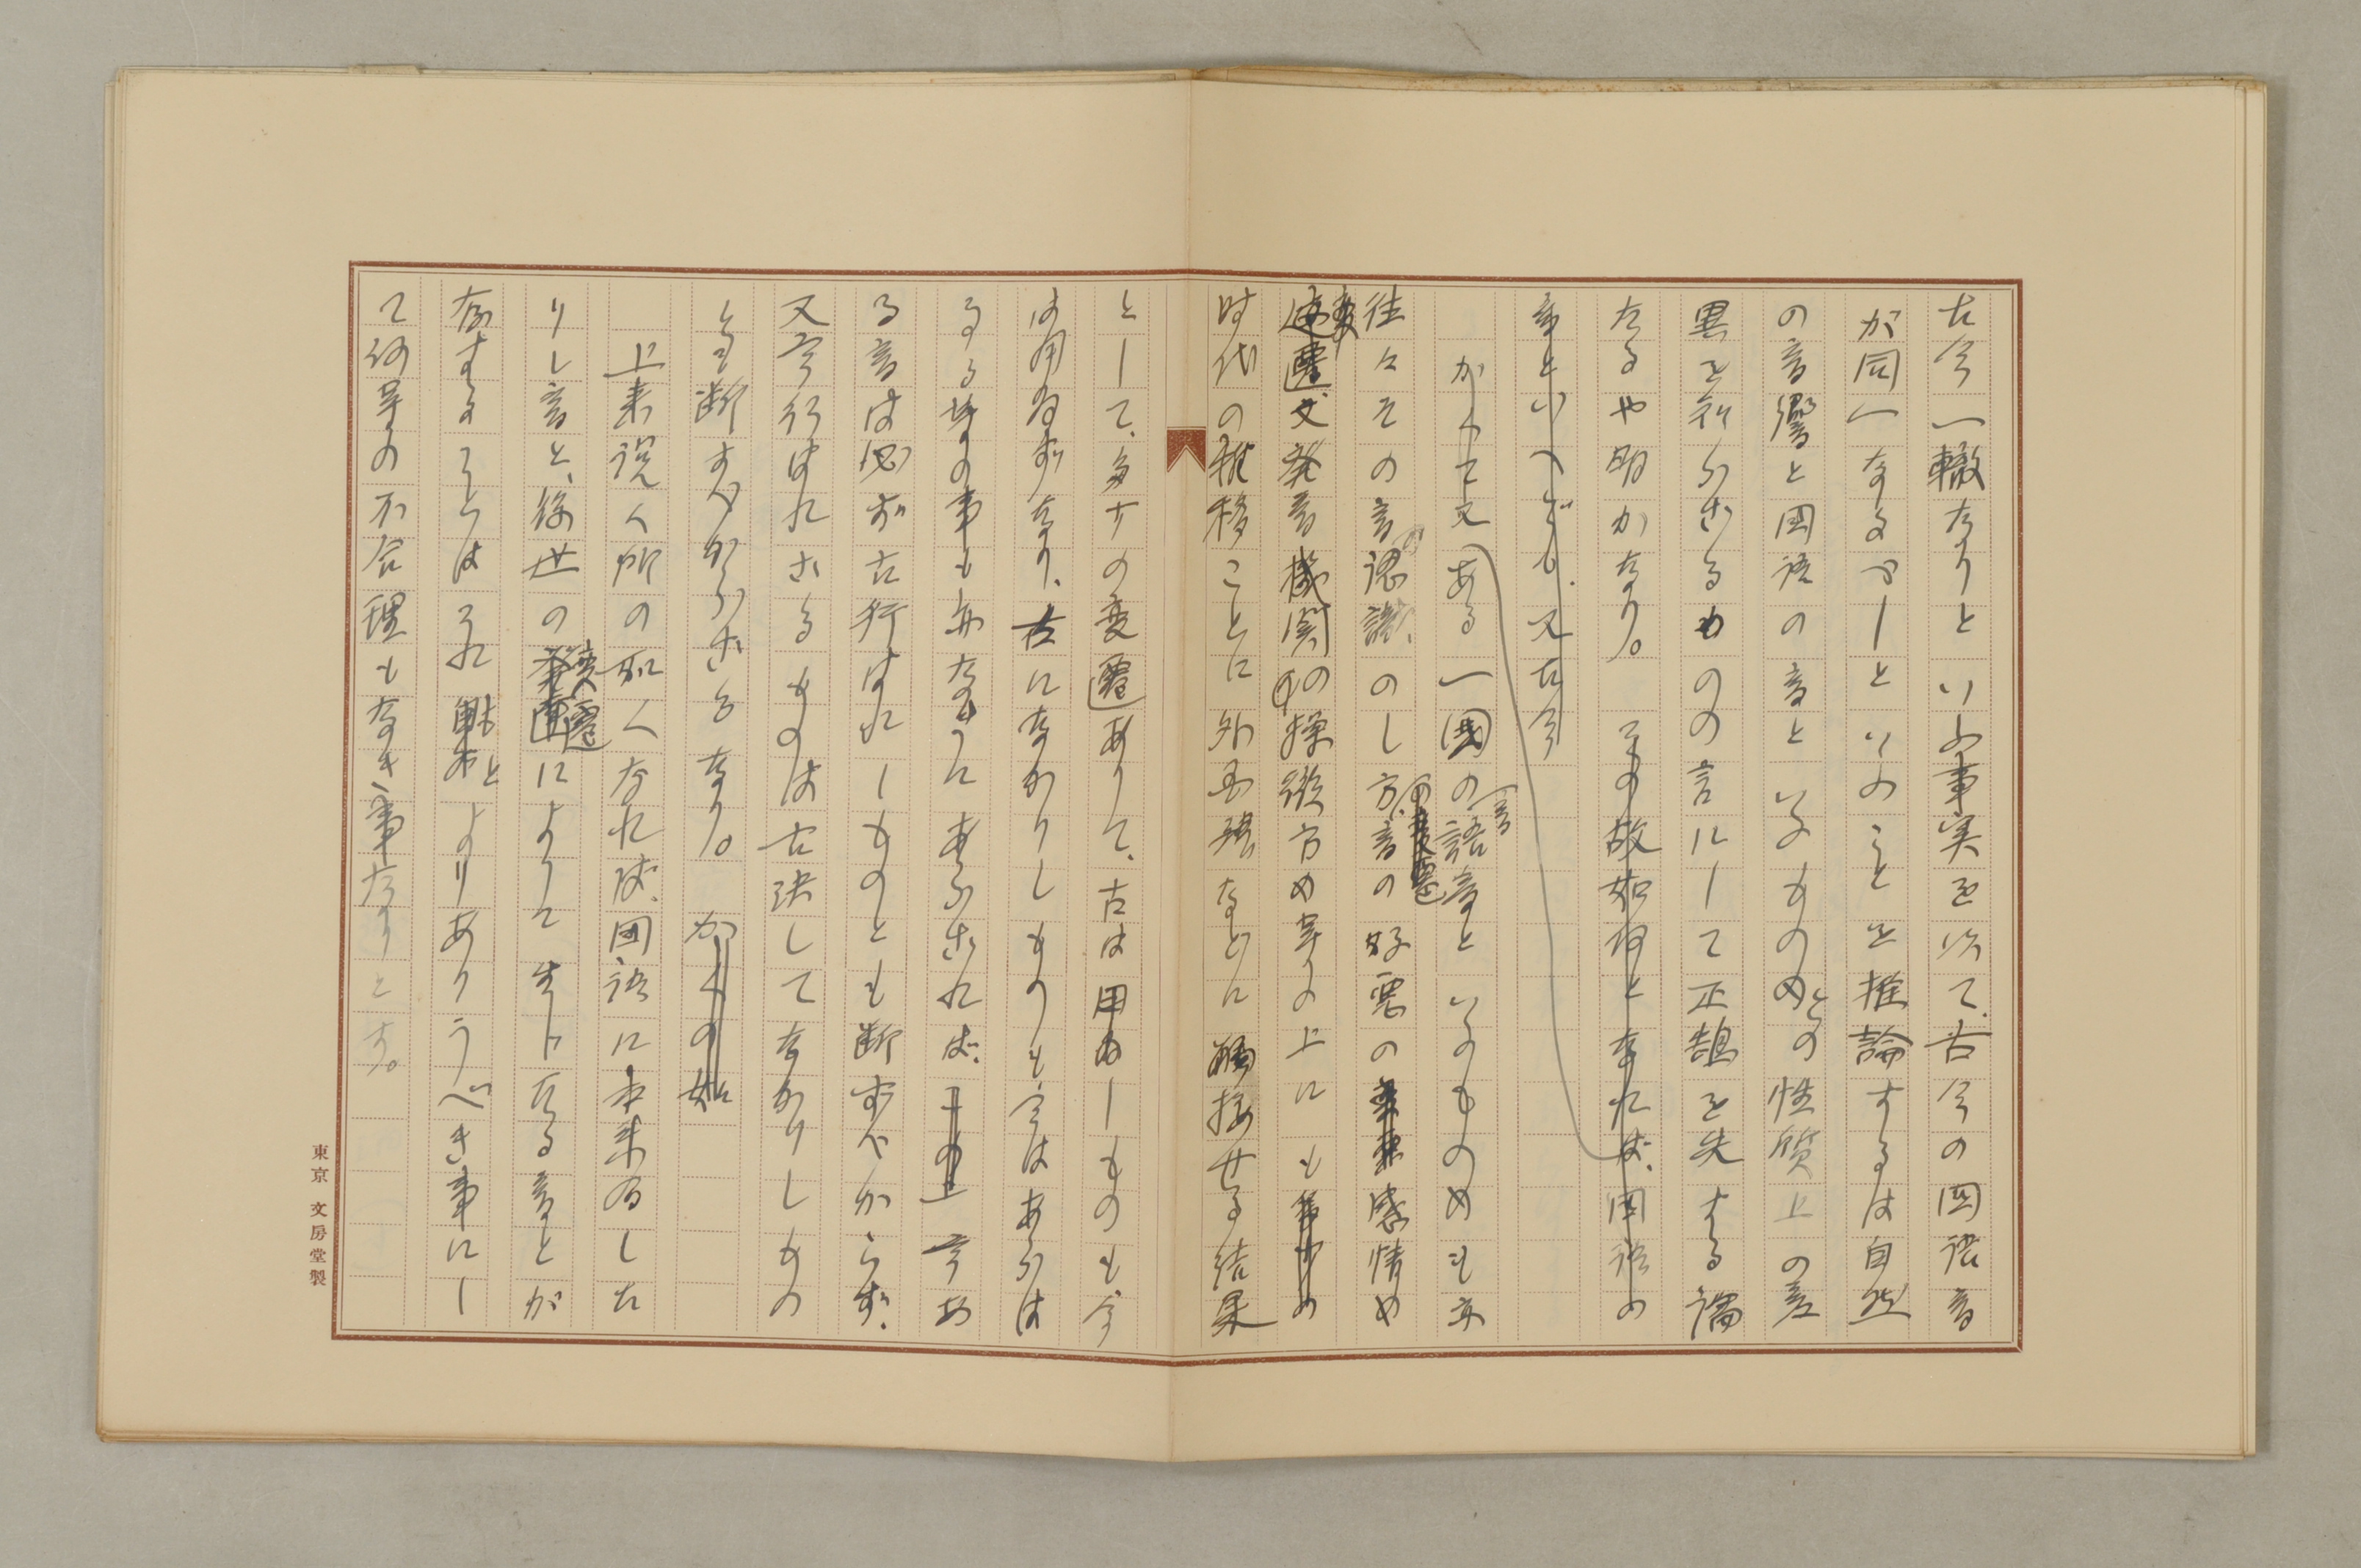 古今一轍なりといふ事実を以て、古今の国語音
が同一なるべしといふことを推論するは自然
の音響と国語の音といふものとの性質上の差
異を知らざるものの言にして正鵠を失する論
なるや明かなり。その故如何となれば、国語の
音といへども、又古今
かくて又ある一国の言語音といふものも亦
往々その音の認識のし方、音の好悪の感情や
変遷又発音機関の操縦方や等の上にも
時代の推移ことに外国語などに触接せる結果
として、多少の変遷ありて、古は用ゐしものも、今
は用ゐずなり、古になかりしものも今はあらは
るる等の事も亦なきにあらざれば、今あ
る音は必ず古行はれしものとも断ずべからず、
又今行はれざるものは古決してなかりしもの
とも断ずべからざるなり。
上来説く所の如くなれば、国語に本来存した
りし音と、後世の変遷によりて生じたる音とが
存することはそれもとよりありうべき事にし
て何等の不合理もなき事なりとす。
東京 文房堂製